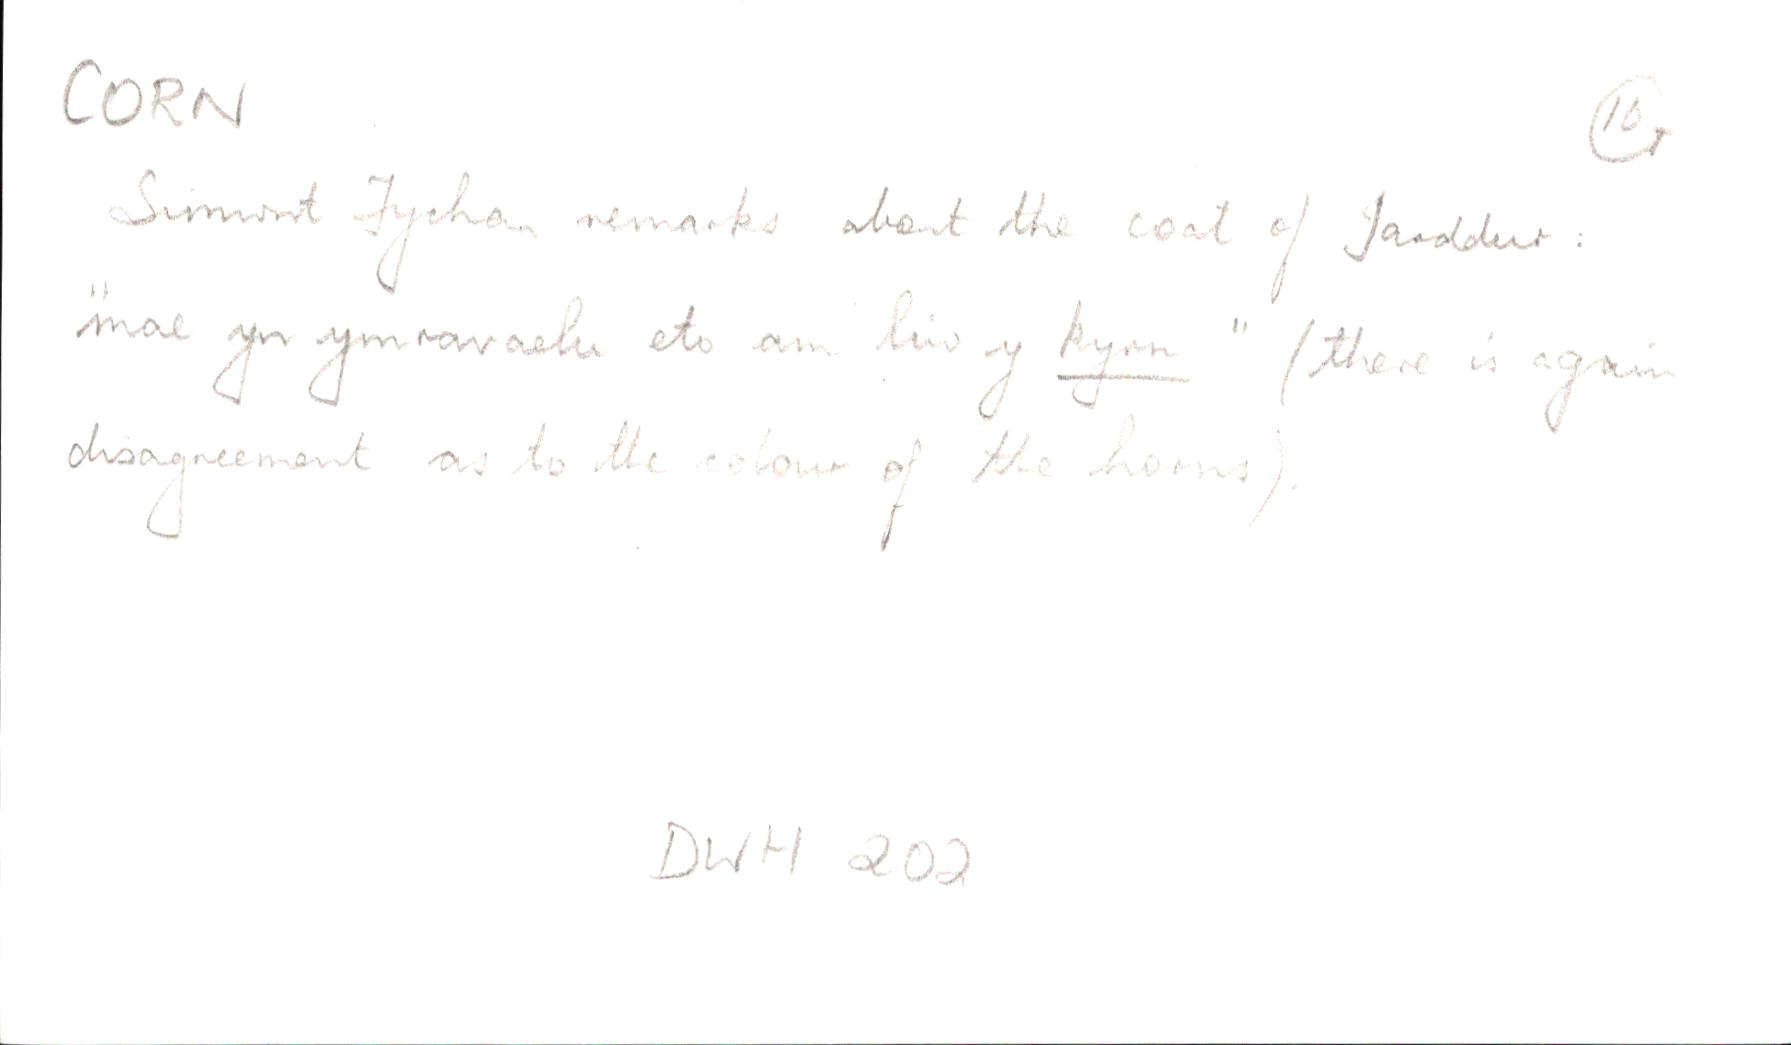 CORN
16
Simwnt Fychan remarks about the coat of Iarddur:
"mae yn ymravaelu eto am liw y kyrn" (there is again
disagreement as to the colour of the horns).
DWH 202